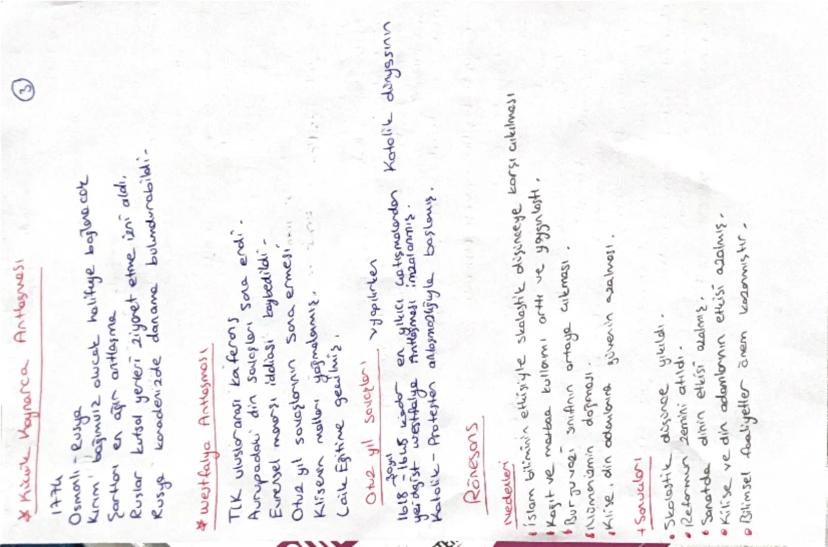 3
* Küçük Kaynarca Antlaşması
1774
Osmanlı - Rusya
Kırım bağımsız olucak halifeye bağlanacak
Şartları en ağır antlaşma
Ruslar kutsal yerleri ziyaret etme izni aldı.
Rusya karadenizde donanma bulundurabildi.
* Westfalya Antlaşması
İlk uluslararası konferans
Avrupadaki din savaşları sona erdi.
Evrensel monarşi iddiası kaybedildi.
Otuz yıl savaşlarının sona ermesi
Kilisenin malları yağmalanmış.
Laik Eğitime geçilmiş.
Otuz yıl savaşları
1618-1648 en yıkıcı çatışmalardan Katolik dünyasının
Westfalya Antlaşması imzalanmış.
Katolik - Protestan başlamış.
Rönesans
Nedenleri
• İslam biliminin etkisiyle skolastik düşünceye karşı çıkılması
• Kağıt ve matbaa kullanımı arttı ve yaygınlaştı.
• Burjuvazi sınıfının ortaya çıkması.
• Hümanizmin doğması
• Kilise, din adamlarına güvenin azalması.
+ Sonuçları
• Skolastik düşünce yıkıldı.
• Reformun zemini atıldı.
• Sanatda dinin etkisi azalmış.
• Kilise ve din adamlarının etkisi azalmış.
• Bilimsel faaliyetler önem kazanmıştır.